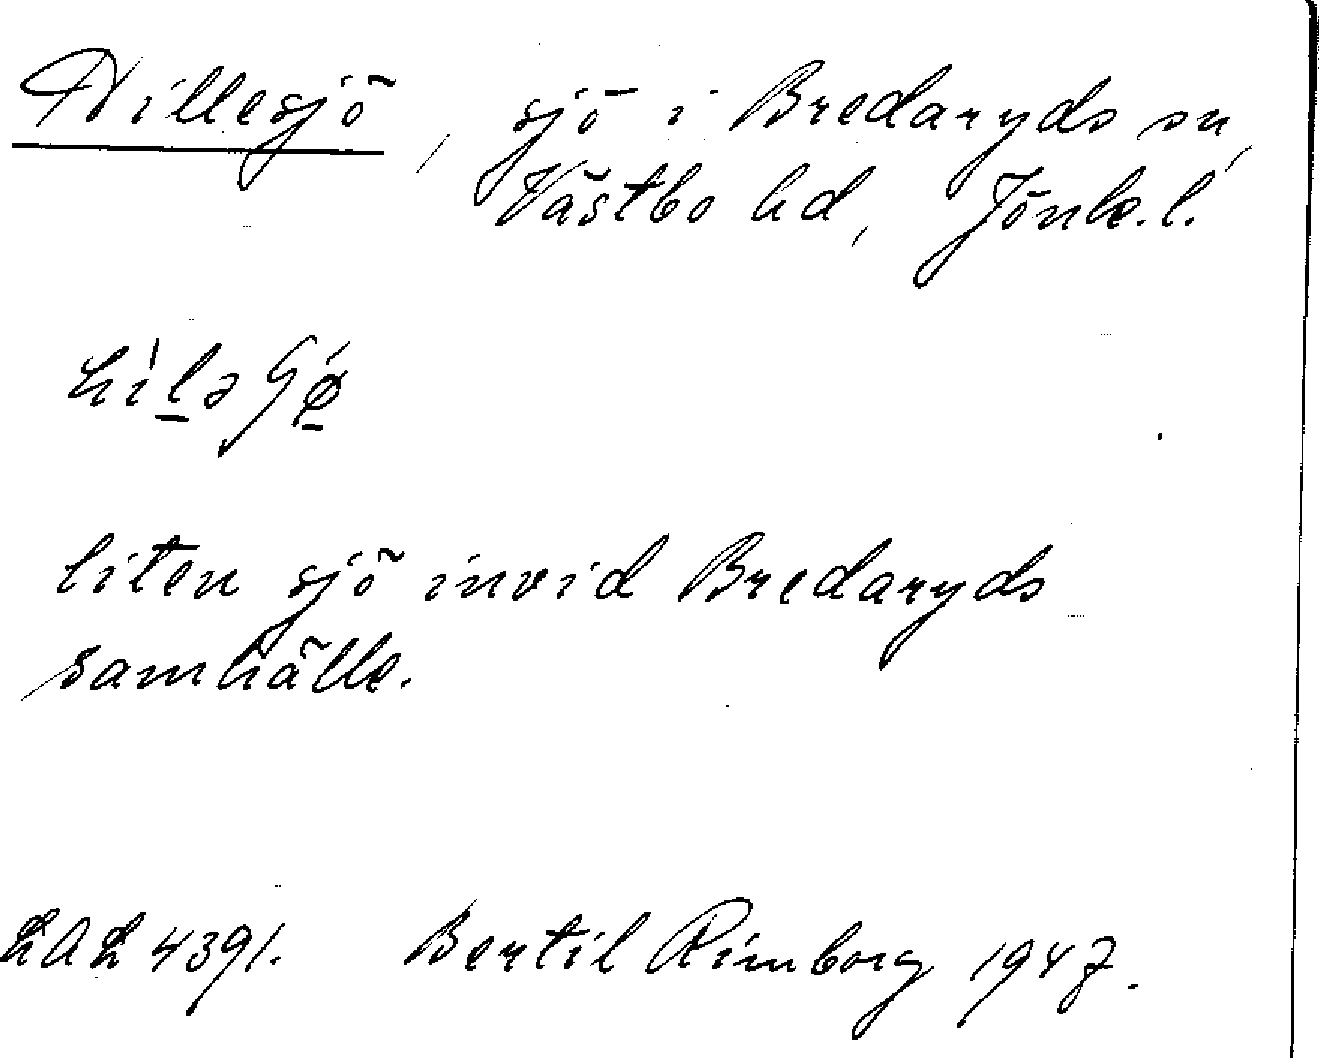 Hillesjö, sjö i Bredaryds sn,
Västbo hd, Jönk.l.
hìləʃø
liten sjö invid Bredaryds
samhälle.
LAL 4391. Bertil Rimborg 1947.